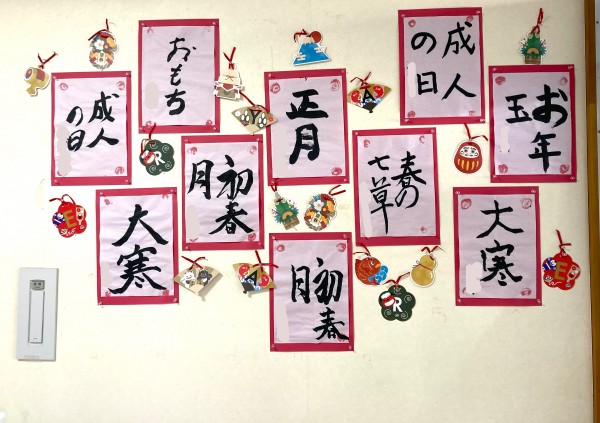 おもち
成人
の日
お年
玉
成人
の日
正月
春の
七草
初春
月
大寒
大寒
初春
月
Y
A
E
R
A
R
E